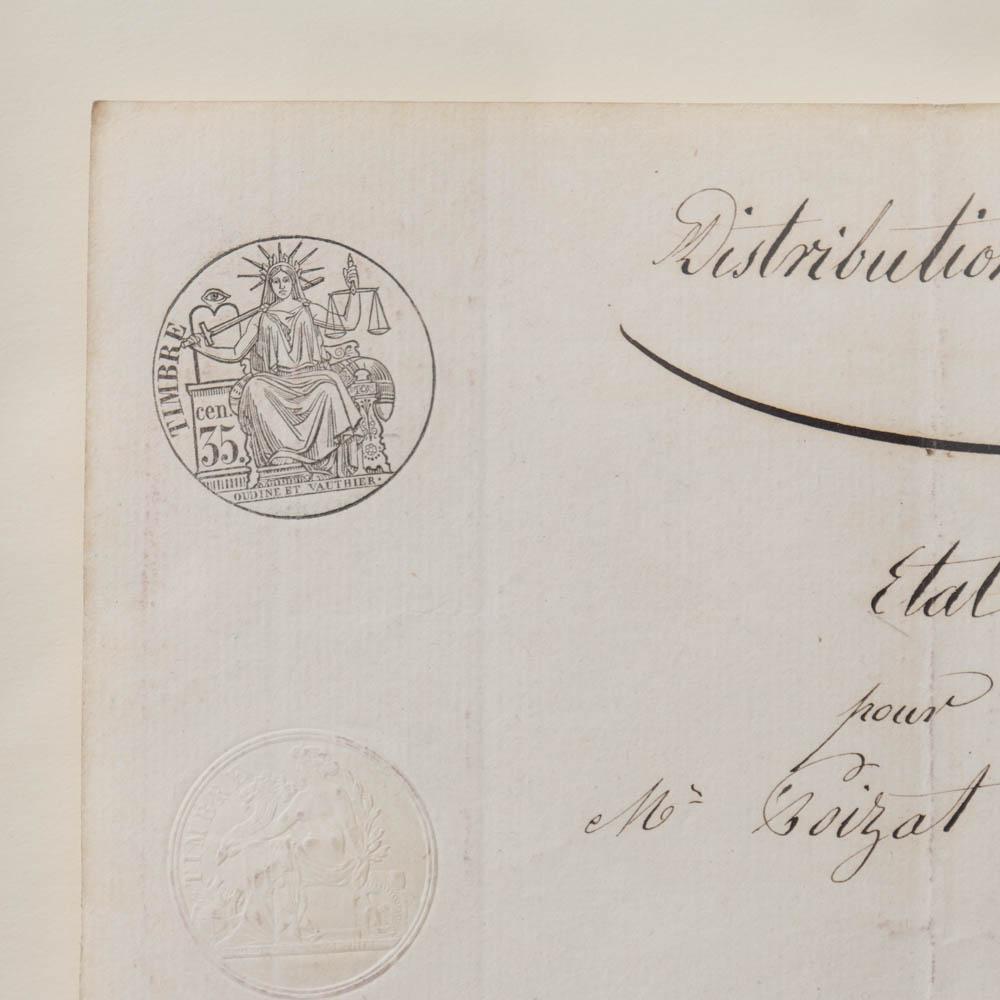 TIMBRE
cen.
35.
OUDINE ET VAUTHIER.
Distribution
Etat
pour
Mr Poizat
TIMBRE